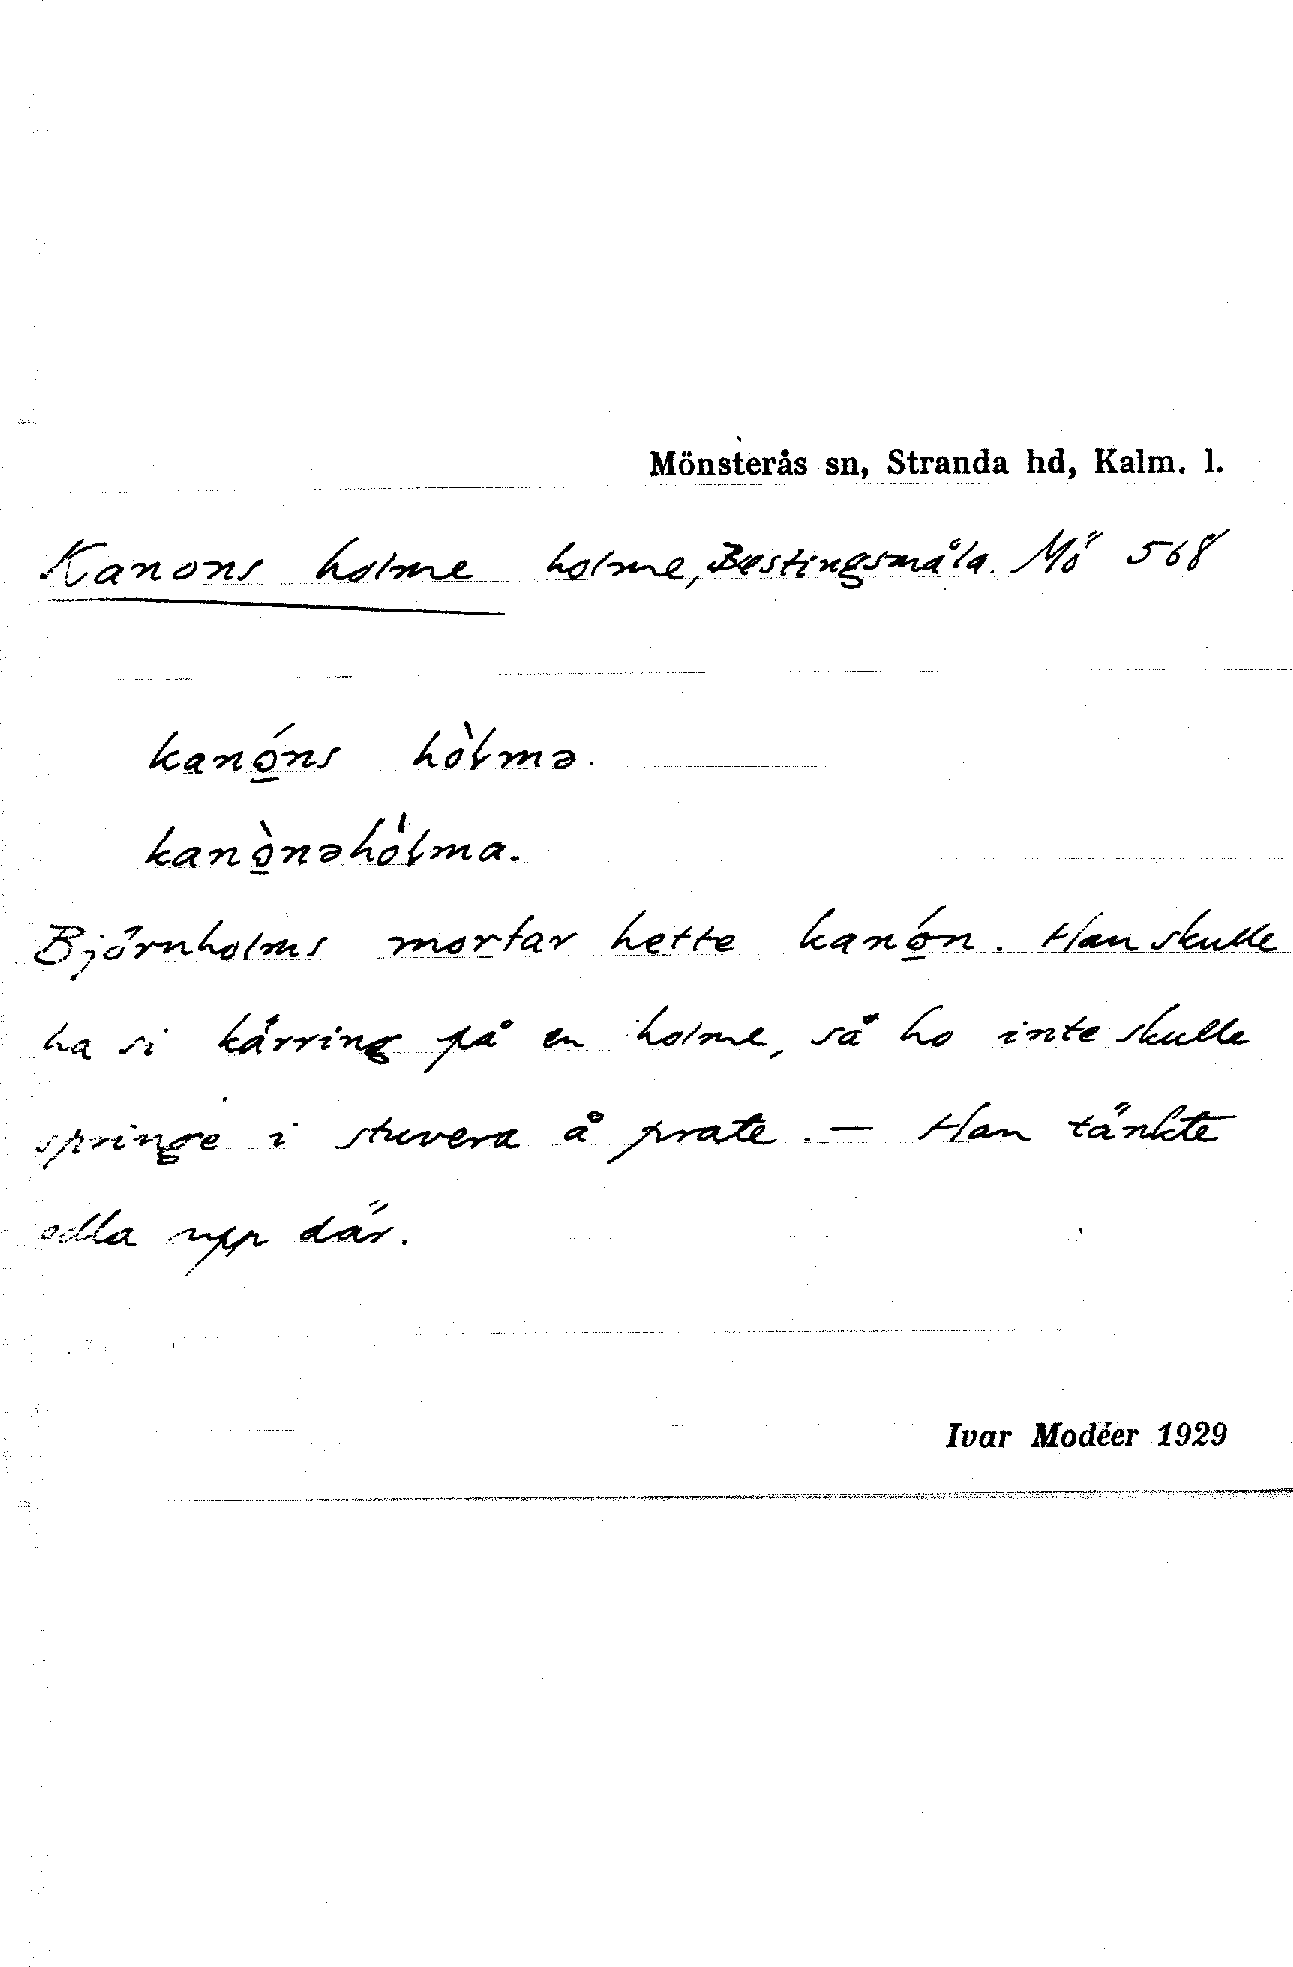 Mönsterås sn, Stranda hd, Kalm. l.
Kanons holme holme, Bestingsmåla. Mö 568
kanó̲ns hòlmə.
kanò̲nəhòlma.
Björnholms morfar hette kanó̲n. Han skulle
ha si kärring på en holme, så ho inte skulle
springe i stuvera å prate. — Han tänkte
odla upp där.
Ivar Modéer 1929